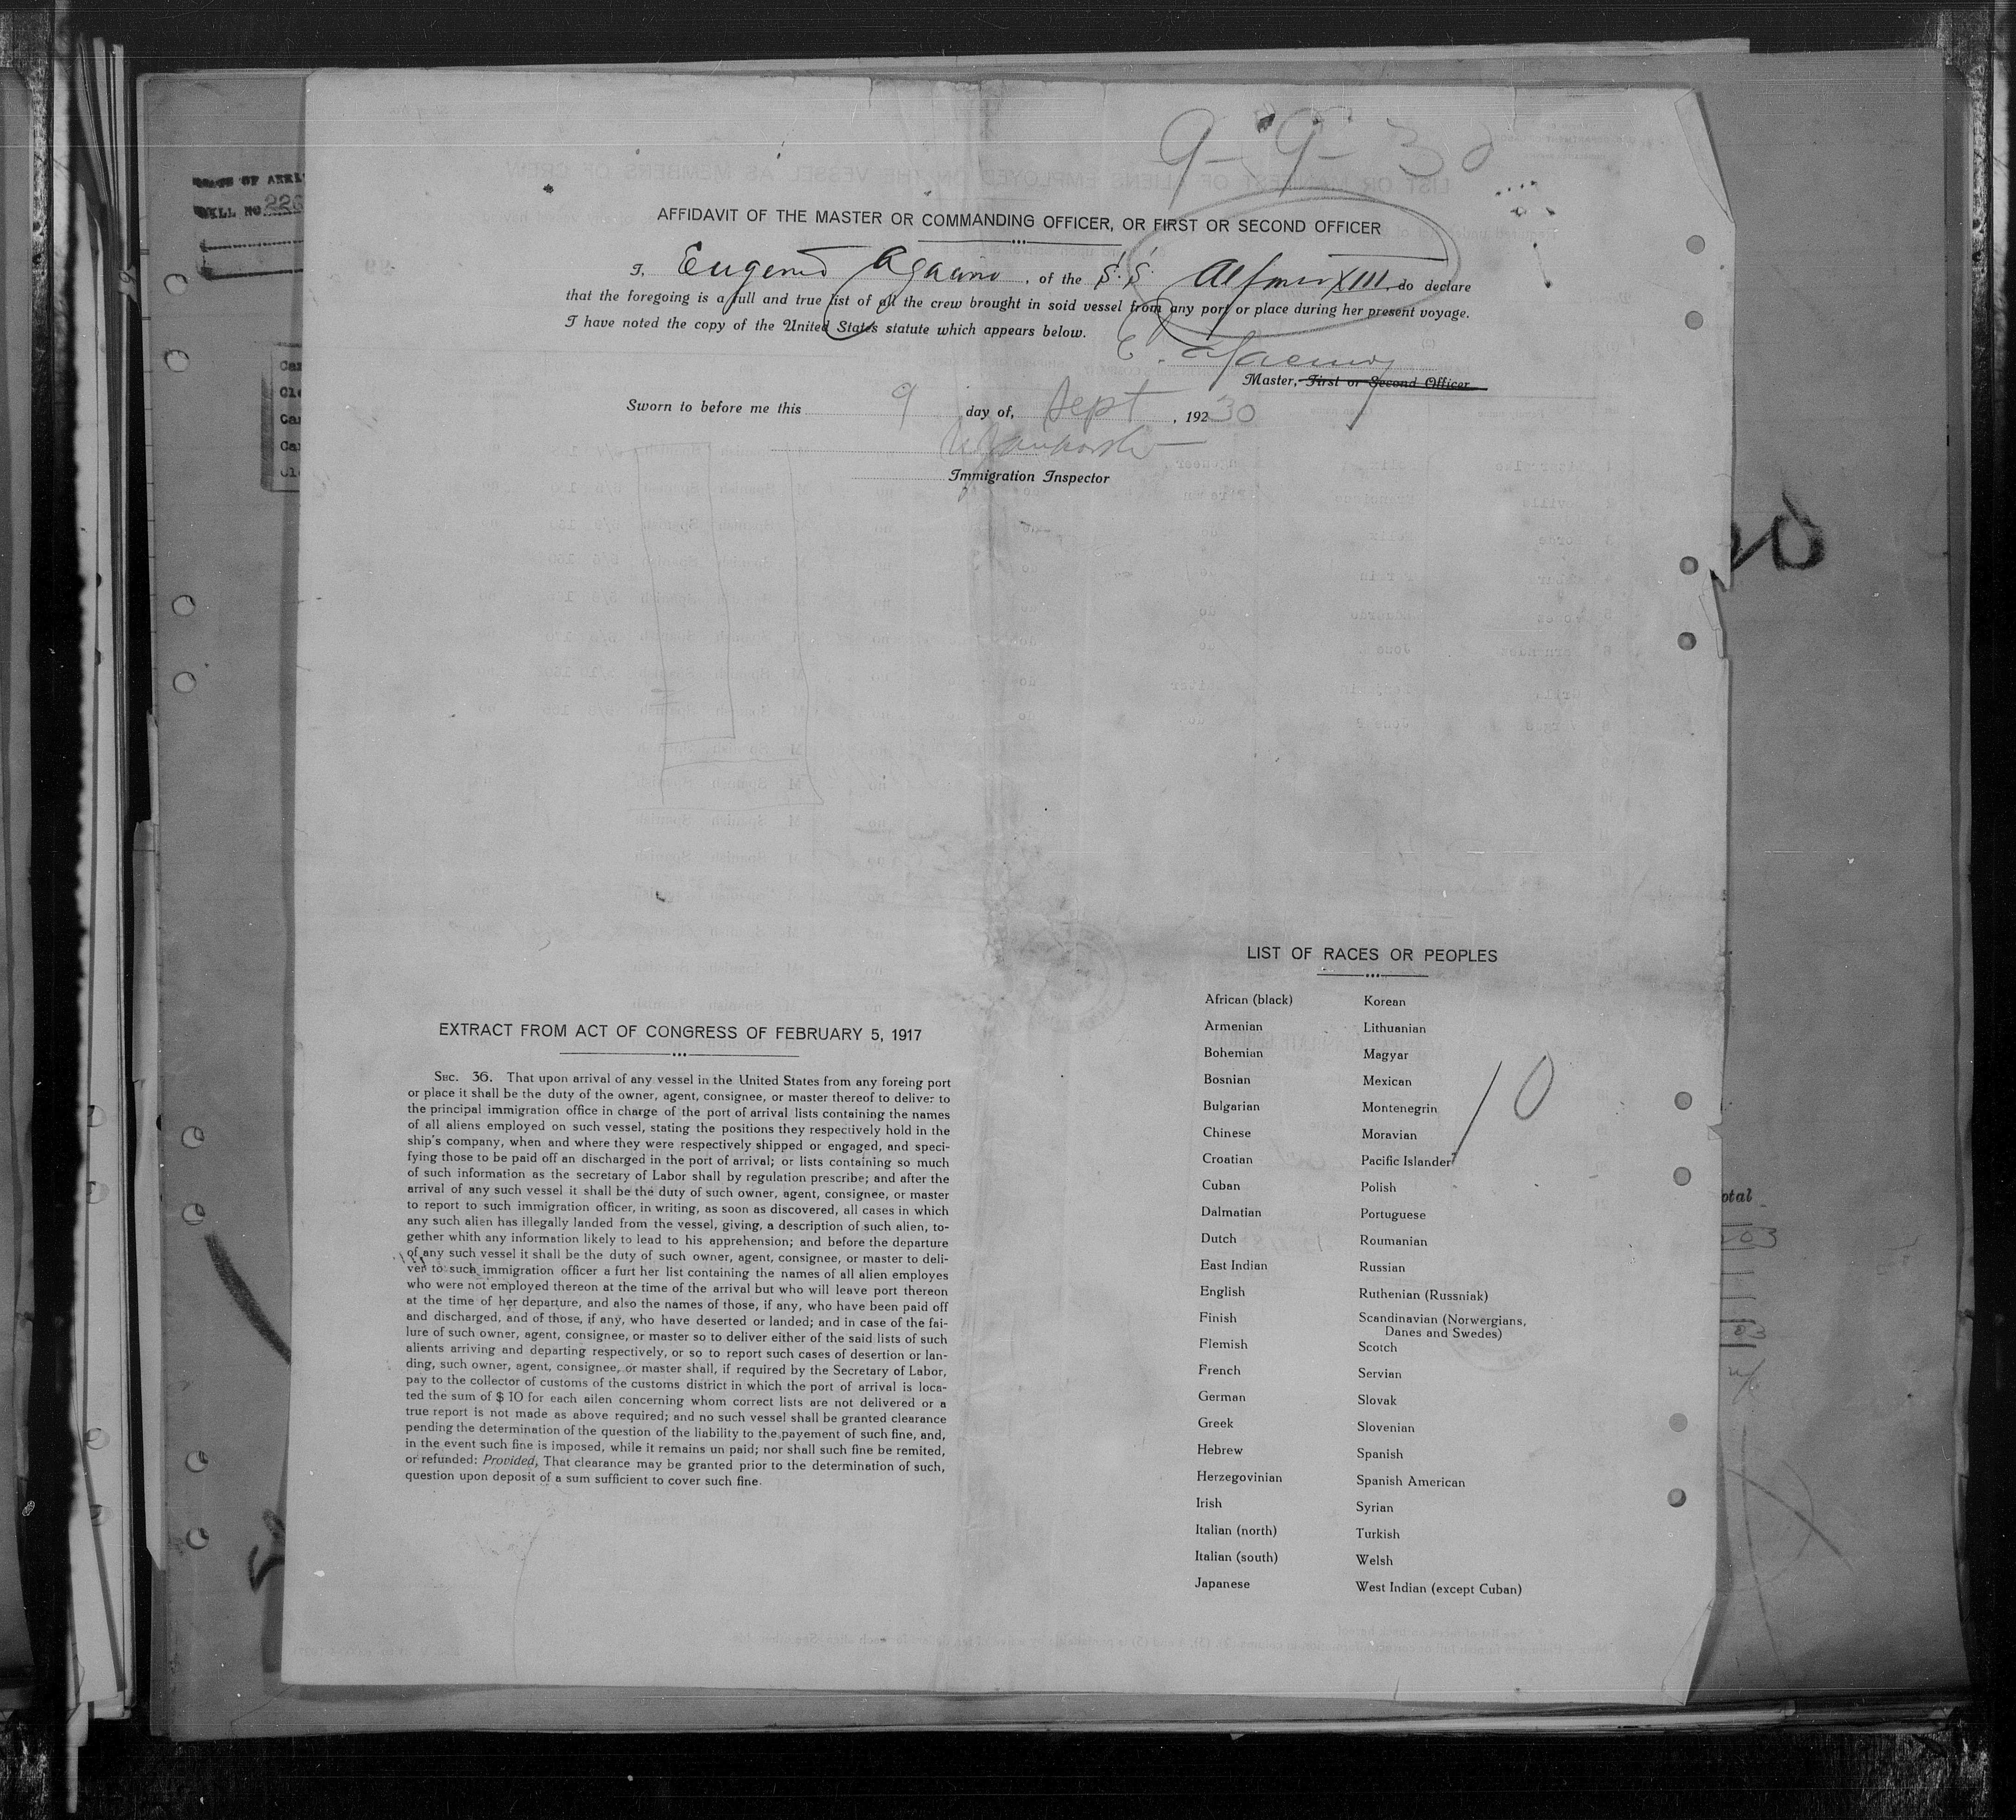 9-9-30
AFFIDAVIT OF THE MASTER OR COMMANDING OFFICER, OR FIRST OR SECOND OFFICER
I, Eugenio Agacino, of the S.S. Alfonso XIII, do declare
that the foregoing is a full and true list of all the crew brought in soid vessel from any port or place during her present voyage.
I have noted the copy of the United States statute which appears below.
E. Agacino
Master, First or Second Officer
Sworn to before me this 9 day of, Sept, 192 30
Immigration Inspector
EXTRACT FROM ACT OF CONGRESS OF FEBRUARY 5, 1917
SEC. 36. That upon arrival of any vessel in the United States from any foreing port
or place it shall be the duty of the owner, agent, consignee, or master thereof to deliver to
the principal immigration office in charge of the port of arrival lists containing the names
of all aliens employed on such vessel, stating the positions they respectively hold in the
ship's company, when and where they were respectively shipped or engaged, and speci-
fying those to be paid off an discharged in the port of arrival; or lists containing so much
of such information as the secretary of Labor shall by regulation prescribe; and after the
arrival of any such vessel it shall be the duty of such owner, agent, consignee, or master
to report to such immigration officer, in writing, as soon as discovered, all cases in which
any such alien has illegally landed from the vessel, giving, a description of such alien, to-
gether whith any information likely to lead to his apprehension; and before the departure
of any such vessel it shall be the duty of such owner, agent, consignee, or master to deli-
ver to such immigration officer a furt her list containing the names of all alien employes
who were not employed thereon at the time of the arrival but who will leave port thereon
at the time of her departure, and also the names of those, if any, who have been paid off
and discharged, and of those, if any, who have deserted or landed; and in case of the fai-
lure of such owner, agent, consignee, or master so to deliver either of the said lists of such
alients arriving and departing respectively, or so to report such cases of desertion or lan-
ding, such owner, agent, consignee, or master shall, if required by the Secretary of Labor,
pay to the collector of customs of the customs district in which the port of arrival is loca-
ted the sum of $ 10 for each ailen concerning whom correct lists are not delivered or a
true report is not made as above required; and no such vessel shall be granted clearance
pending the determination of the question of the liability to the payement of such fine, and,
in the event such fine is imposed, while it remains un paid; nor shall such fine be remited,
or refunded: Provided, That clearance may be granted prior to the determination of such,
question upon deposit of a sum sufficient to cover such fine.
LIST OF RACES OR PEOPLES
African (black) Korean
Armenian Lithuanian
Bohemian Magyar
Bosnian Mexican
Bulgarian Montenegrin
Chinese Moravian
Croatian Pacific Islander
Cuban Polish
Dalmatian Portuguese
Dutch Roumanian
East Indian Russian
English Ruthenian (Russniak)
Finish Scandinavian (Norwergians,
Danes and Swedes)
Flemish Scotch
French Servian
German Slovak
Greek Slovenian
Hebrew Spanish
Herzegovinian Spanish American
Irish Syrian
Italian (north) Turkish
Italian (south) Welsh
Japanese West Indian (except Cuban)
10